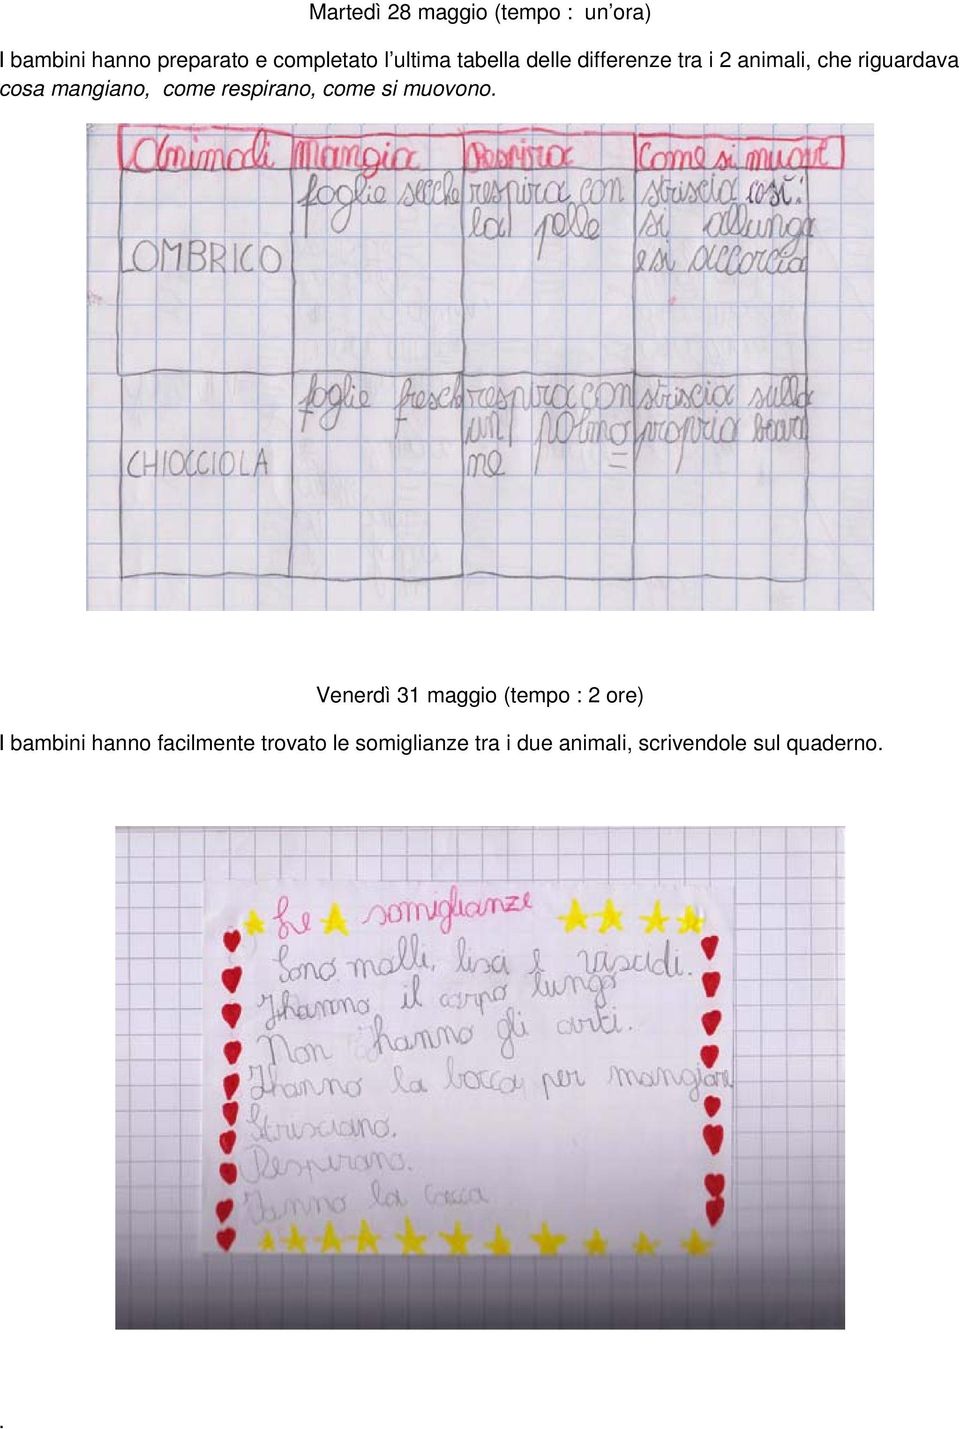 Martedì 28 maggio (tempo : un'ora)
I bambini hanno preparato e completato l'ultima tabella delle differenze tra i 2 animali, che riguardava
cosa mangiano, come respirano, come si muovono.
Animali mangia Respira Come si muove
LOMBRICO
foglie secche
respira con
la pelle
striscia così:
si allunga
e si accorcia
CHIOCCIOLA
foglie fresch
respira con
un polmo=
ne
striscia sulla
propria bava
Venerdì 31 maggio (tempo : 2 ore)
I bambini hanno facilmente trovato le somiglianze tra i due animali, scrivendole sul quaderno.
Le somiglianze
Sono molli, lisci e viscidi.
Hanno il corpo lungo
Non hanno gli arti.
Hanno la bocca per mangiare
Strisciano.
Respirano.
Fanno la cacca
.